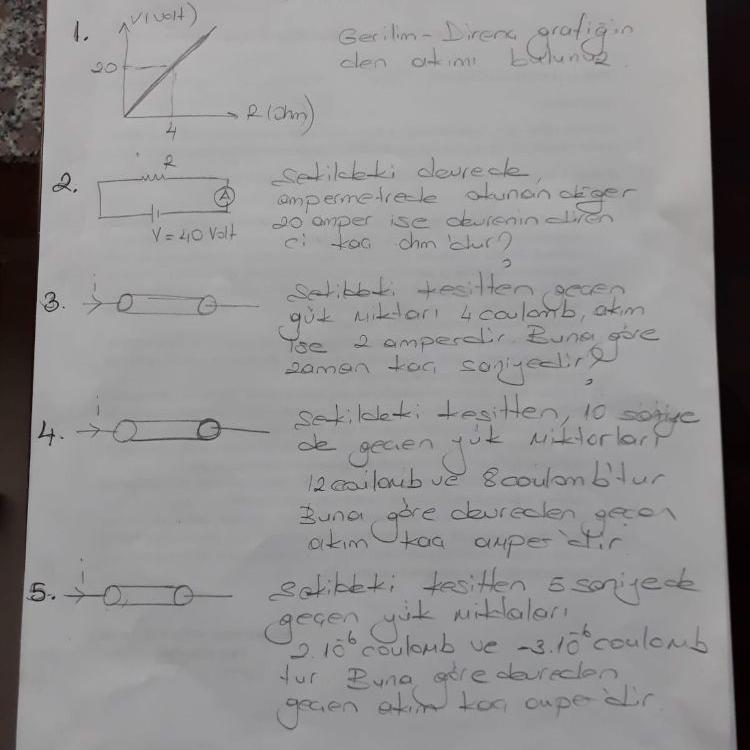 1.
V(volt)
20
4
R(Ohm)
Gerilim-Direnç grafiğin
den akımı bulunuz.
2.
R
A
V = 40 Volt
Şekildeki devrede,
ampermetrede okunan değer
20 amper ise devrenin diren
ci kaç ohm'dur?
3.
i
Şekildeki kesitten geçen
yük miktarı 4 coulomb, akım
ise 2 amperdir. Buna göre
zaman kaç saniyedir?
4.
i
Şekildeki kesitten, 10 saniye
de geçen yük miktarları
12 coulomb ve 8 coulomb'tur
Buna göre devreden geçen
akım kaç amper'dir
5.
i
Şekildeki kesitten 5 saniyede
geçen yük miktaları
2.10⁻⁶ coulomb ve -3.10⁻⁶ coulomb
tur Buna göre devreden
geçen akım kaç amper'dir.